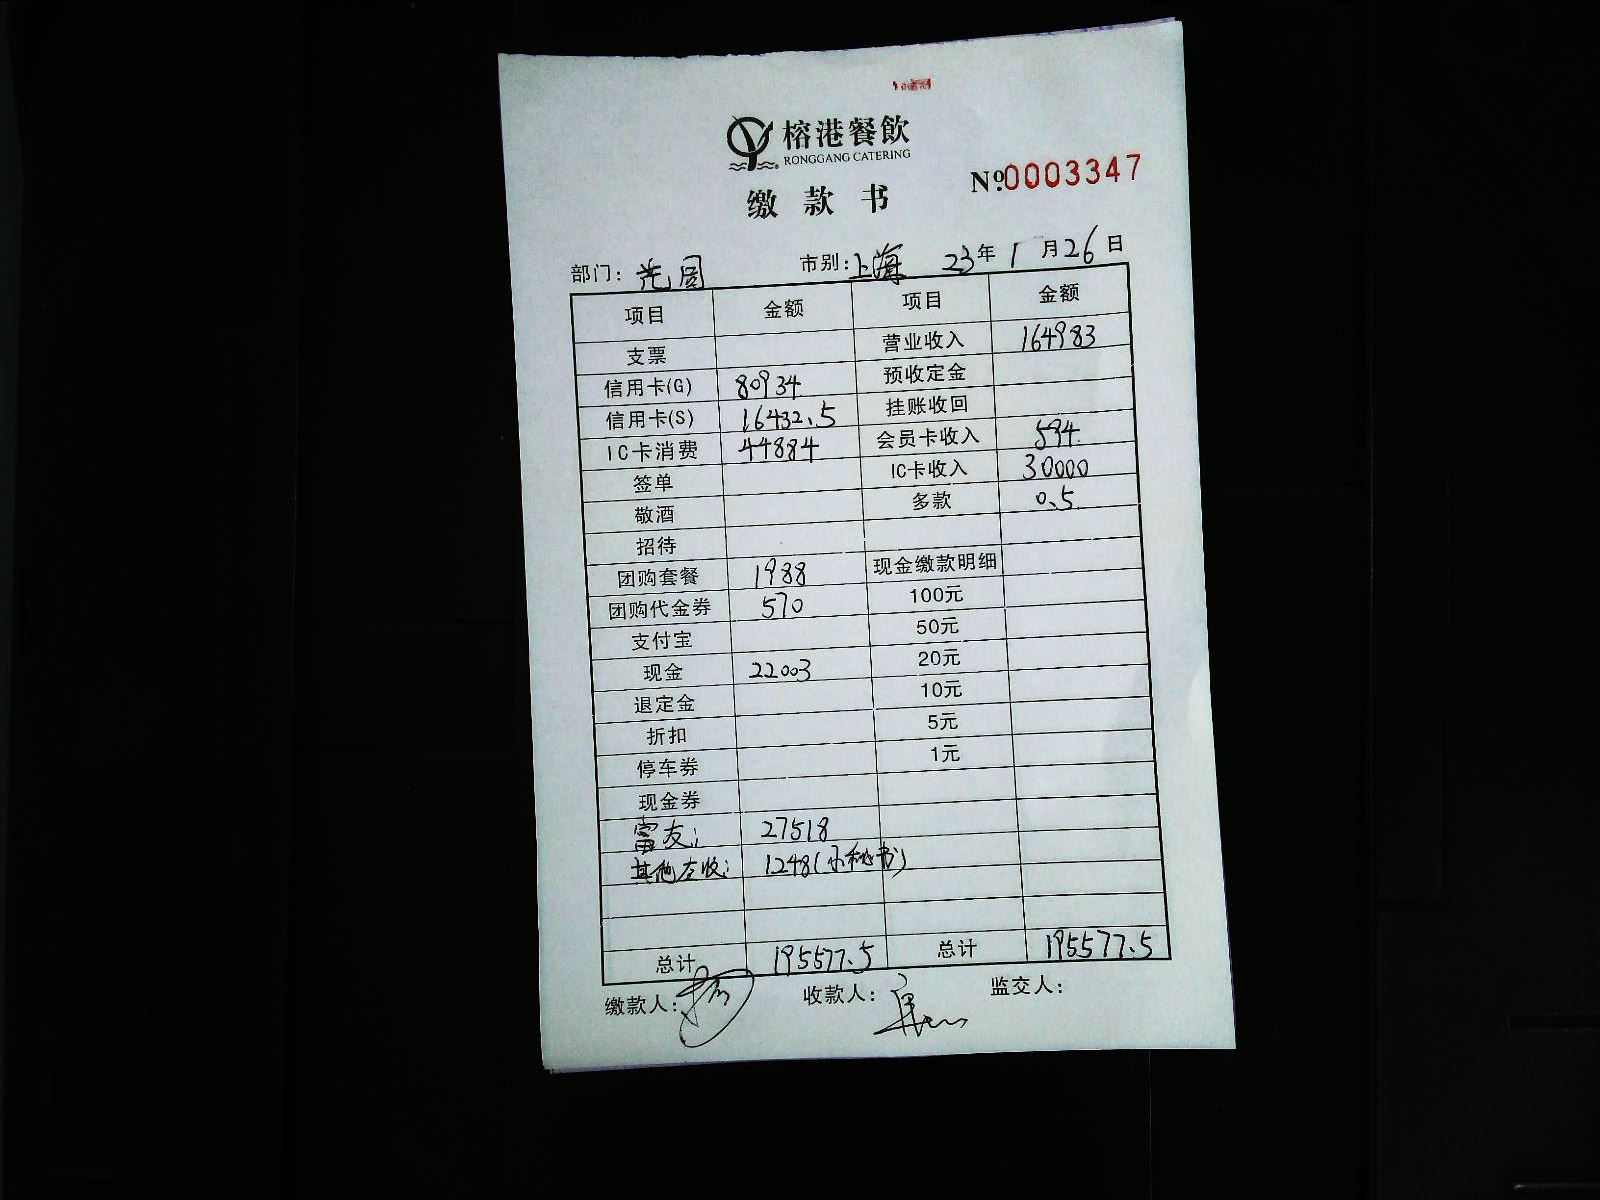 榕港餐飲
RONGGANG CATERING
缴款书
No.0003347
部门: 市别:上海 23年1月26日
项目 金额 项目 金额
支票 营业收入 164983
信用卡(G) 80934 预收定金
信用卡(S) 16432.5 挂账收回
IC卡消费 44884 会员卡收入 594
签单 IC卡收入 30000
敬酒 多款 0.5
招待
团购套餐 1988 现金缴款明细
团购代金券 570 100元
支付宝 50元
现金 22003 20元
退定金 10元
折扣 5元
停车券 1元
现金券
富友: 27518
其他应收: 1248(小秘书)
总计 195577.5 总计 195577.5
缴款人: 收款人: 监交人: